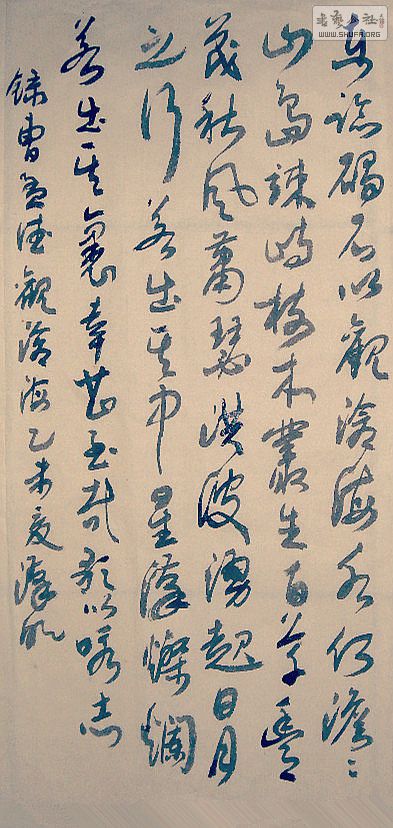 東臨碣石以觀滄海水何澹〻
山島竦峙樹木叢生百草豐
茂秋風蕭瑟洪波湧起日月
之行若出其中星漢燦爛
若出其裏幸甚至哉歌以咏志
錄曹孟德觀滄海乙未夏
WWW.SHUFA.ORG